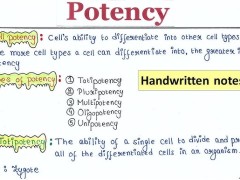 Potency
Cell potency : Cell's ability to differentiate into other cell types
The more cell types a cell can differentiate into, the greater is
potency
Types of potency :
① Totipotency
② Pluripotency
③ Multipotency
④ Oligopotency
⑤ Unipotency
Handwritten notes
Totipotency : The ability of a single cell to divide and pro
all of the differentiated cells in an organism.
: Zygote